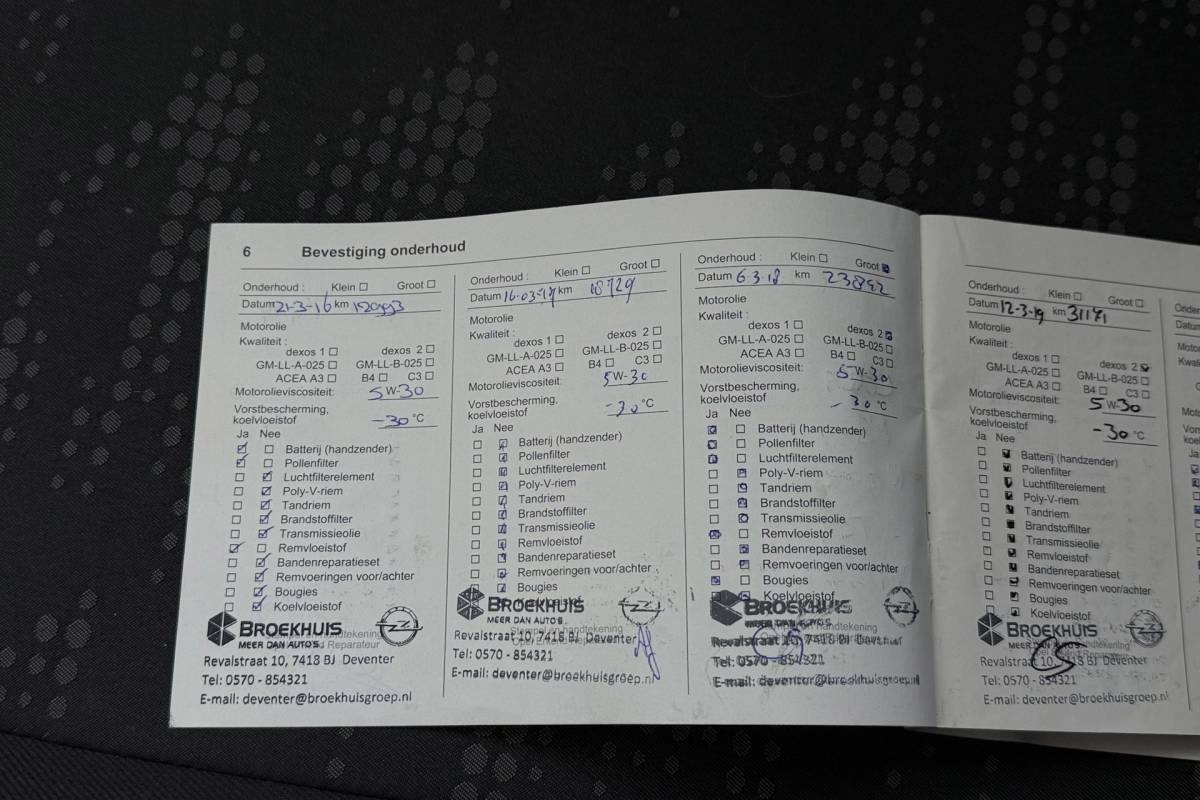 6 Bevestiging onderhoud
Onderhoud : Klein Groot
Datum 21-3-16 km
Motorolie
Kwaliteit :
dexos 1 dexos 2
GM-LL-A-025 GM-LL-B-025
ACEA A3 B4 C3
Motorolieviscositeit: 5W-30
Vorstbescherming,
koelvloeistof -30 °C
Ja Nee
Batterij (handzender)
Pollenfilter
Luchtfilterelement
Poly-V-riem
Tandriem
Brandstoffilter
Transmissieolie
Remvloeistof
Bandenreparatieset
Remvoeringen voor/achter
Bougies
Koelvloeistof
BROEKHUIS
MEER DAN AUTO'S
Revalstraat 10, 7418 BJ Deventer
Tel: 0570 - 854321
E-mail: deventer@broekhuisgroep.nl
Onderhoud : Klein Groot
Datum 16-03-17 km 18729
Motorolie
Kwaliteit :
dexos 1 dexos 2
GM-LL-A-025 GM-LL-B-025
ACEA A3 B4 C3
Motorolieviscositeit: 5W-30
Vorstbescherming,
koelvloeistof -30 °C
Ja Nee
Batterij (handzender)
Pollenfilter
Luchtfilterelement
Poly-V-riem
Tandriem
Brandstoffilter
Transmissieolie
Remvloeistof
Bandenreparatieset
Remvoeringen voor/achter
Bougies
BROEKHUIS
MEER DAN AUTO'S
Revalstraat 10, 7418 BJ Deventer
Tel: 0570 - 854321
E-mail: deventer@broekhuisgroep.nl
Onderhoud : Klein Groot
Datum 6 3 18 km 23892
Motorolie
Kwaliteit :
dexos 1 dexos 2
GM-LL-A-025 GM-LL-B-025
ACEA A3 B4 C3
Motorolieviscositeit: 5W-30
Vorstbescherming,
koelvloeistof -30 °C
Ja Nee
Batterij (handzender)
Pollenfilter
Luchtfilterelement
Poly-V-riem
Tandriem
Brandstoffilter
Transmissieolie
Remvloeistof
Bandenreparatieset
Remvoeringen voor/achter
Bougies
Koelvloeistof
BROEKHUIS
MEER DAN AUTO'S
Revalstraat 10, 7418 BJ Deventer
Tel: 0570 - 854321
E-mail: deventer@broekhuisgroep.nl
Onderhoud : Klein Groot
Datum 12-3-19 km 31171
Motorolie
Kwaliteit :
dexos 1 dexos 2
GM-LL-A-025 GM-LL-B-025
ACEA A3 B4 C3
Motorolieviscositeit: 5W-30
Vorstbescherming,
koelvloeistof -30 °C
Ja Nee
Batterij (handzender)
Pollenfilter
Luchtfilterelement
Poly-V-riem
Tandriem
Brandstoffilter
Transmissieolie
Remvloeistof
Bandenreparatieset
Remvoeringen voor/achter
Bougies
Koelvloeistof
BROEKHUIS
MEER DAN AUTO'S
Revalstraat 10, 7418 BJ Deventer
Tel: 0570 - 854321
E-mail: deventer@broekhuisgroep.nl